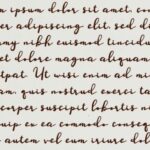 m ipsum dolor sit amet, co
r adipiscing elit, sed di
my nibh euismod tincidun
et dolore magna aliquam
utpat. Ut wisi enim ad mi
am, quis nostrud exerci ta
orper suscipit lobortis ni
uip ex ea commodo conseq
autem vel eum iriure do